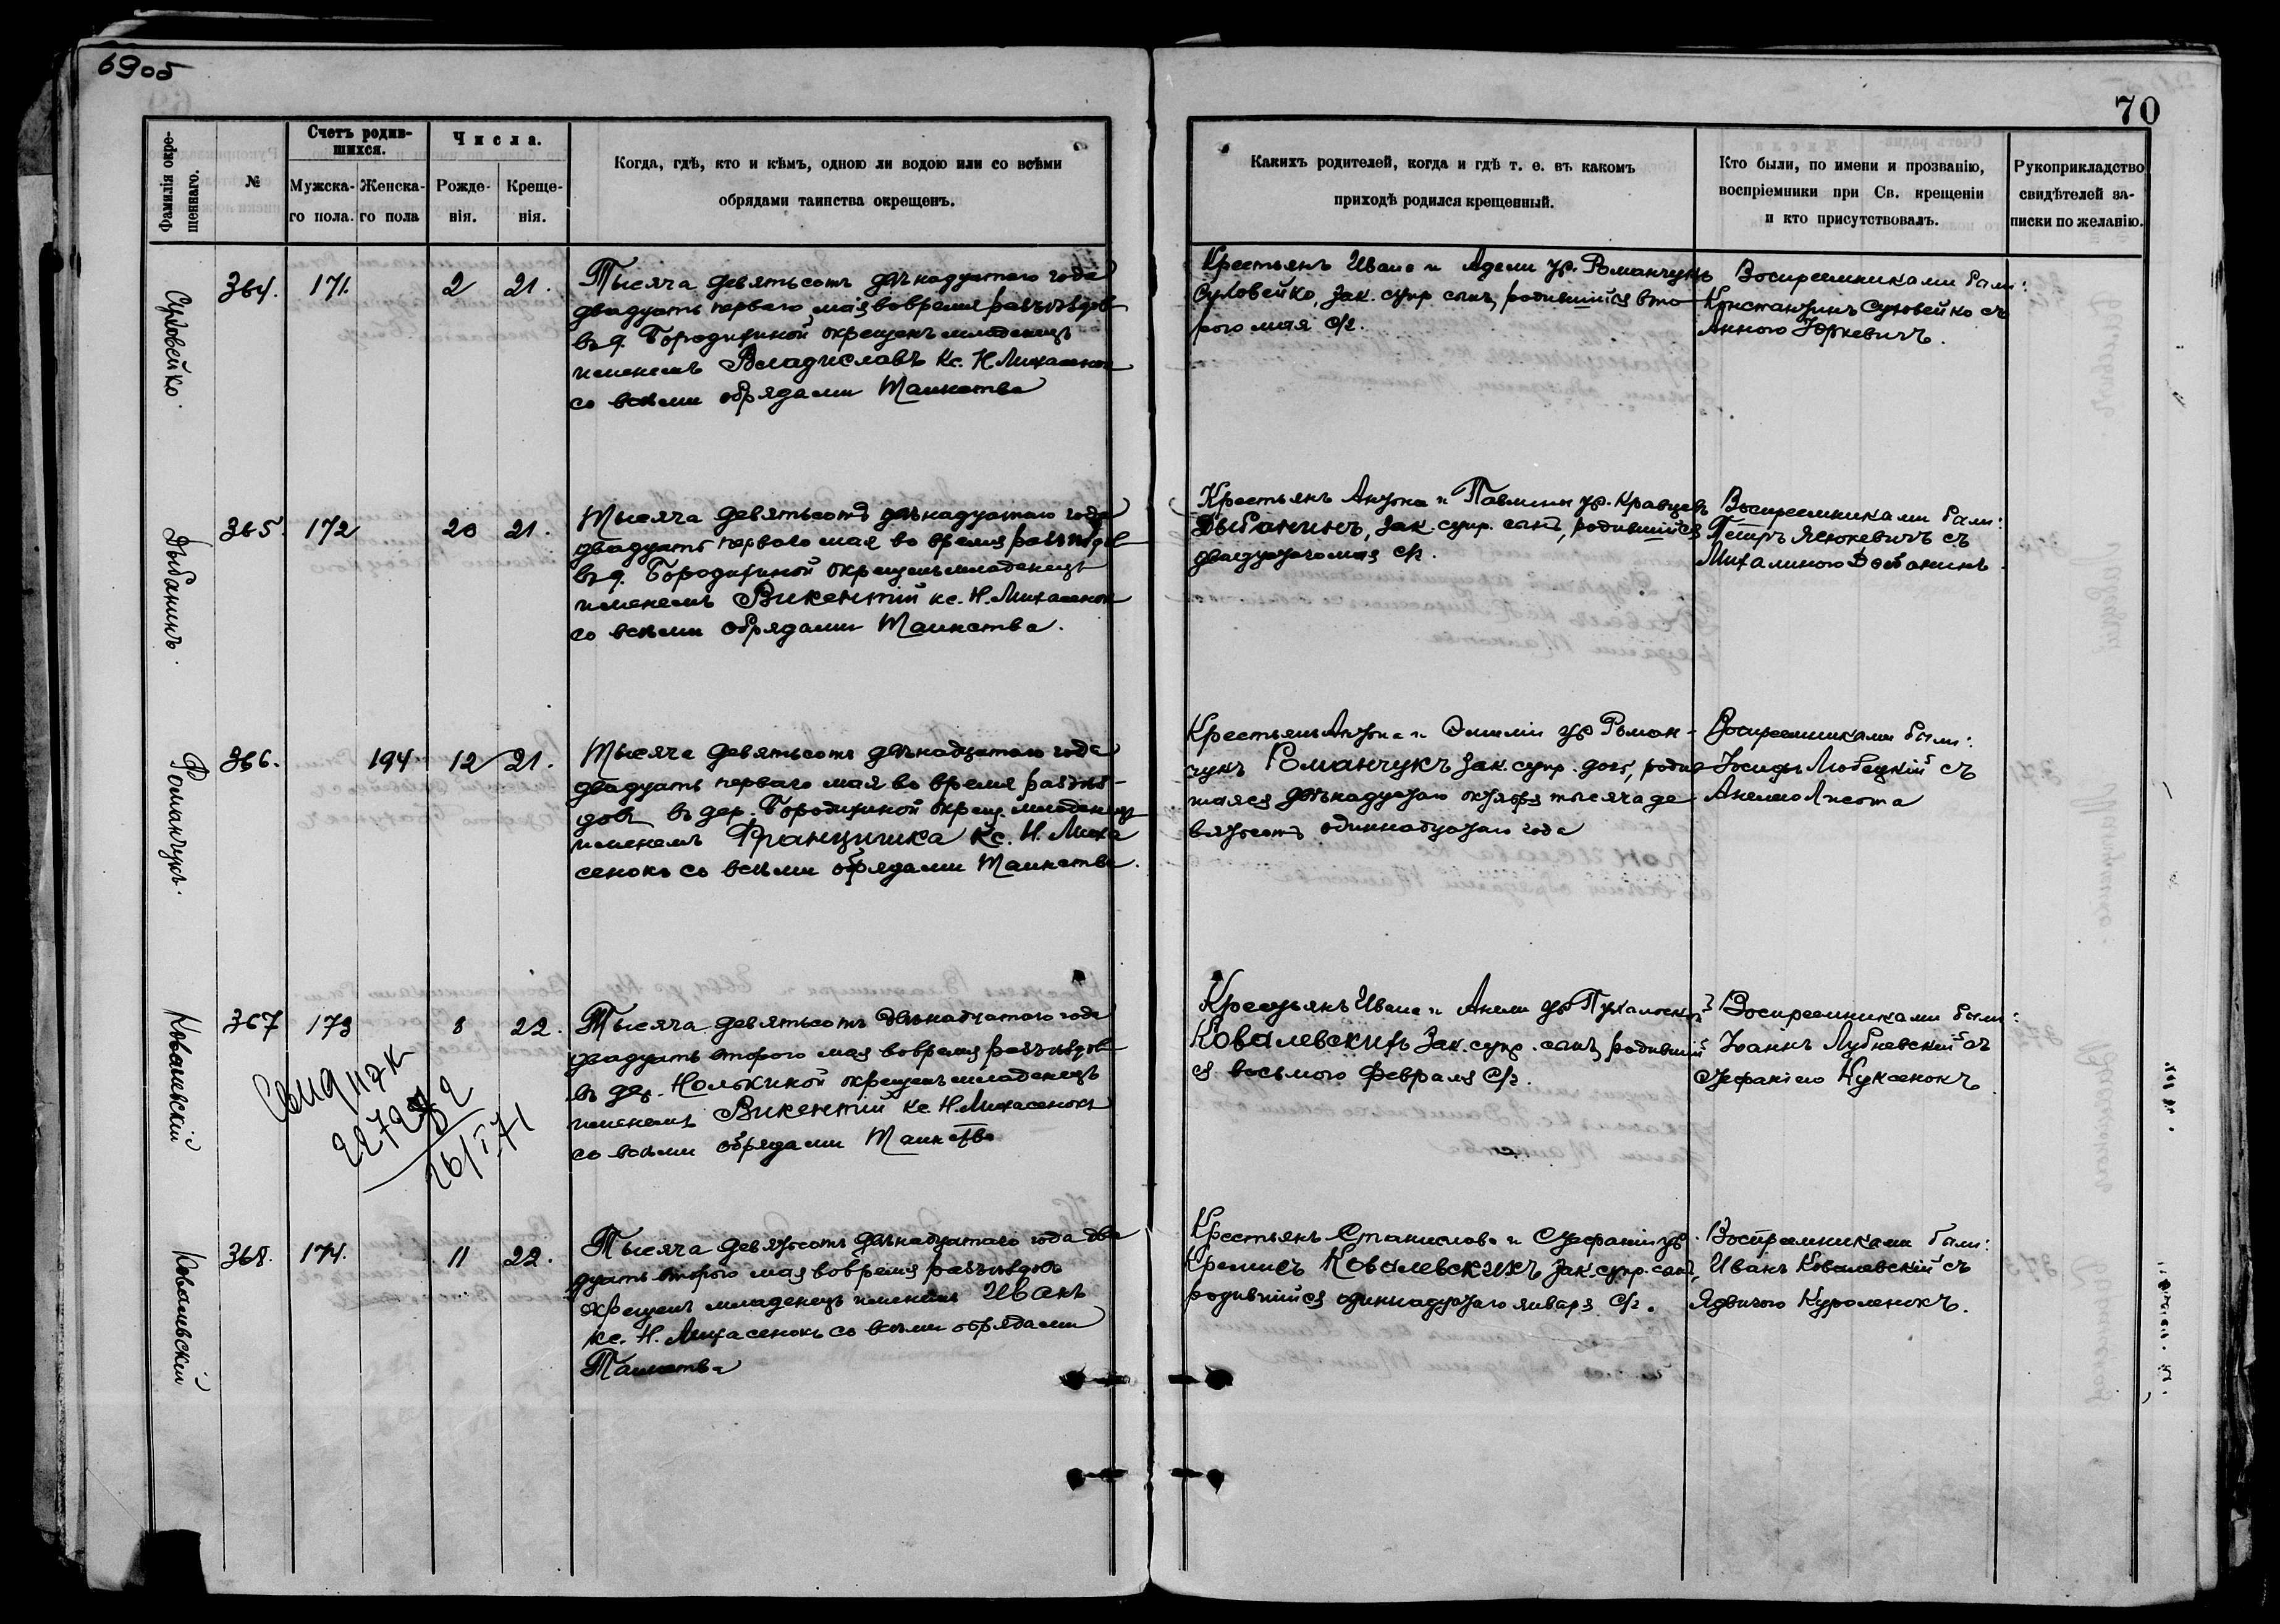 69об
70
Фамилія окре-
щеннаго.
№
Счетъ родив-
шихся.
Мужска-
го пола.
Женска-
го пола
Числа.
Рожде-
нія.
Креще-
нія.
Когда, гдѣ, кто и кѣмъ, одною ли водою или со всѣми
обрядами таинства окрещенъ.
Какихъ родителей, когда и гдѣ т. е. въ какомъ
приходѣ родился крещенный.
Кто были, по имени и прозванію,
воспріемники при Св. крещеніи
и кто присутствовалъ.
Рукоприкладство
свидѣтелей за-
писки по желанію.
Суховейко.
364.
171.
2
21.
Тысяча девятьсотъ двѣнадцатаго года
двадцать перваго мая вовремя разъѣздовъ
въ д. Бородищиной окрещенъ младенецъ
именемъ Владиславъ Кс. Н. Михасенокъ
со всѣми обрядами Таинства
Крестьянъ Ивана и Адели ур. Романчукъ
Суховейко, зак. супр. сынъ, родившійся вто-
рого мая с/г.
Воспреемниками были:
Константинъ Суховейко съ
Анною Юркевичъ.
Дыбанинъ.
365.
172
20
21.
Тысяча девятьсотъ двѣнадцатаго года
двадцать перваго мая во время разъѣздовъ
въ д. Бородищиной окрещенъ младенецъ
именемъ Викентій кс. Н. Михасенокъ
со всѣми обрядами Таинства.
Крестьянъ Антона и Павлины ур. Кравцевъ
Дыбанинъ, зак. супр. сынъ, родившійся
двадцатаго мая с/г.
Воспреемниками были:
Петръ Ясюкевичъ съ
Михалиною Дыбанинъ
Романчукъ.
366.
194
12
21.
Тысяча девятьсотъ двѣнадцатаго года
двадцать перваго мая во время разъѣз-
довъ въ дер. Бородищиной окрещ. младенецъ
именемъ Францишка Кс. Н. Миха
сенокъ со всѣми обрядами Таинства.
Крестьянъ Антона и Эмиліи ур Роман-
чукъ Романчукъ зак. супр. дочь, родив-
шаяся двѣнадцатаго октября тысяча де-
вятьсотъ одиннадцатаго года
Воспреемниками были:
Іосифъ Любецкій съ
Анелею Лисота
Ковалевскій
367
173
8
22.
Тысяча девятьсотъ двѣнадцатаго года
двадцать второго мая вовремя разъѣздовъ
въ дер. окрещенъ младенецъ
именемъ Викентій кс. Н. Михасенокъ
со всѣми обрядами Таинства
Крестьянъ Ивана и Анели ур
Ковалевскихъ зак. супр. сынъ, родившій
ся восьмого Февраля с/г.
Воспреемниками были:
Іоаннъ Лубневскій съ
Стефаніею Куксенокъ
26/I 71
Ковалевскій
368.
174.
11
22.
Тысяча девятьсотъ двѣнадцатаго года два
дцать второго мая вовремя разъѣздовъ
окрещенъ младенецъ именемъ Иванъ
кс. Н. Михасенокъ со всѣми обрядами
Таинства
Крестьянъ Станислава и Стефаніи ур.
Кремисъ Ковалевскихъ зак. супр. сынъ,
родившійся одиннадцатаго января с/г.
Воспреемниками были:
Иванъ Ковалевскій съ
Ядвигою Куроленокъ.